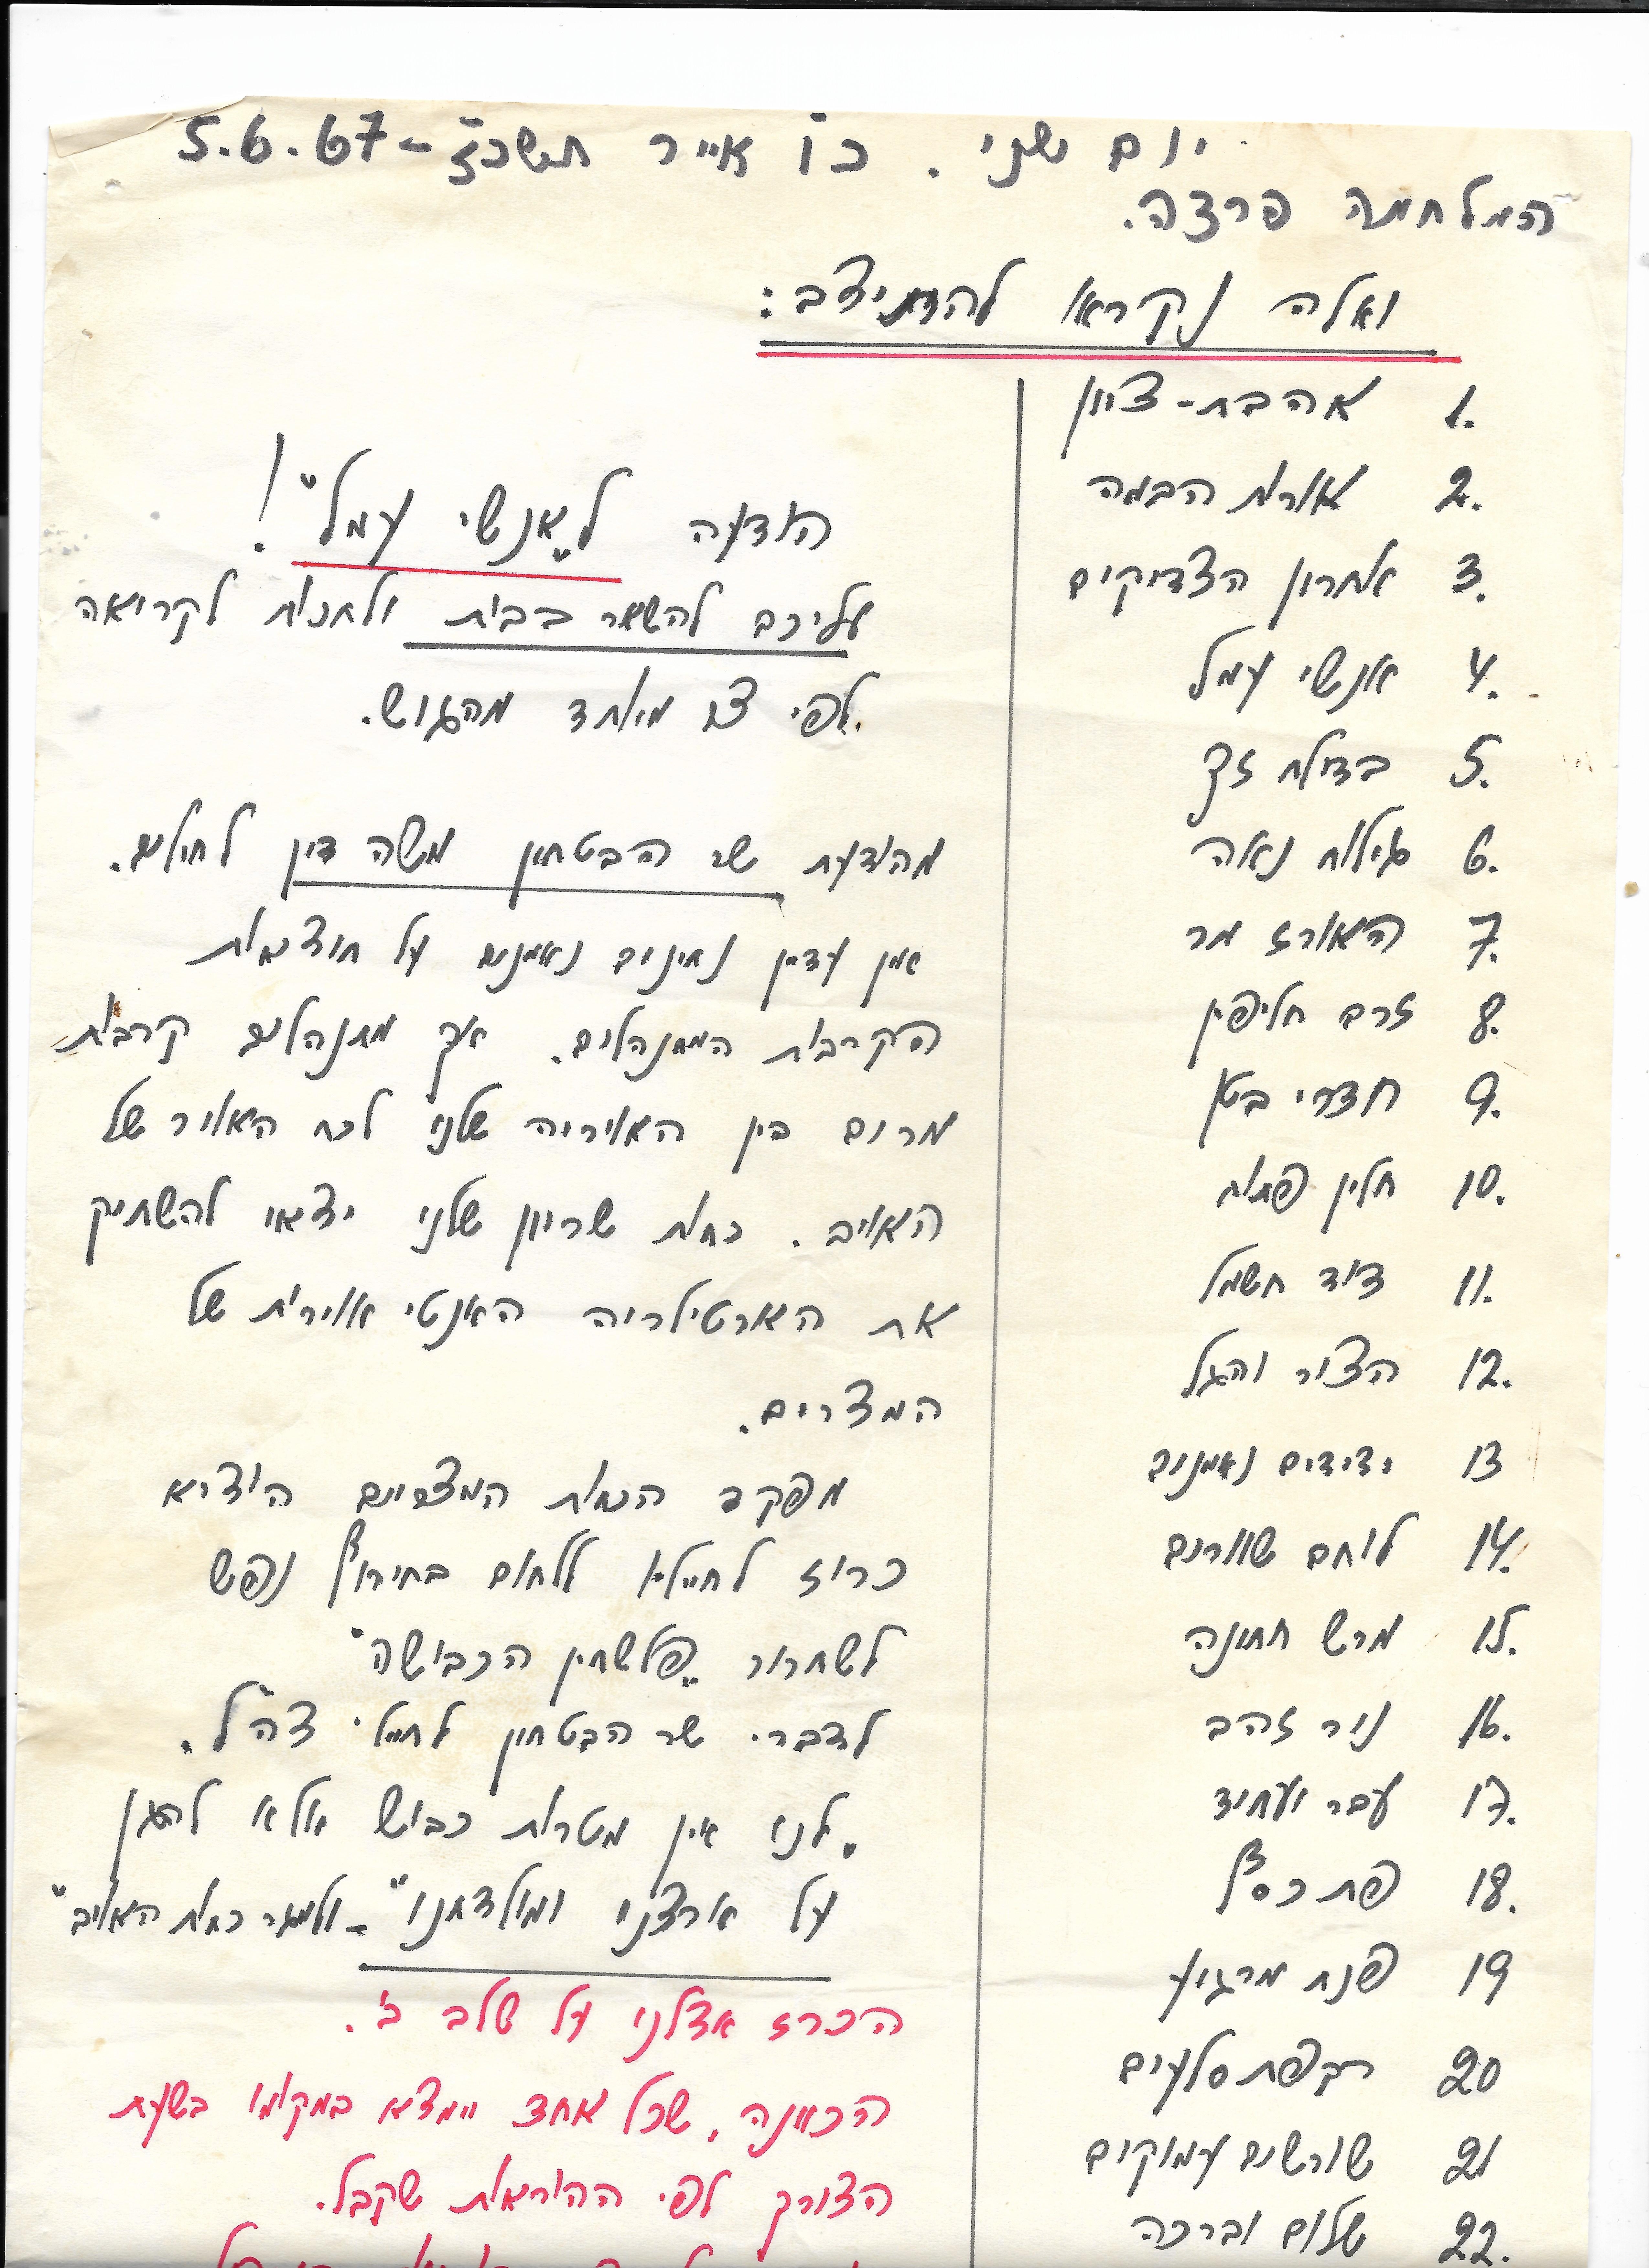 יום שני. כ"ו אייר תשכ"ז - 5.6.67
המלחמה פרצה.
ואלה נקראו להתיצב:
1. אהבת-ציון
2. אורות הבמה
3. אחרון הצדיקים
4. אנשי עמל
5. בדולח זך
6. גילוח נאה
7. האורז מר
8. זרם חליפין
9. חדרי בטן
10. חלון פתוח
11. דוד חשמל
12. הצור והגל
13 ידידים נאמנים
14. לוחם שוורים
15. מרש חתונה
16. ניר זהב
17. עבר ועתיד
18. פת כסלץ
19 פנת מרגוע
20 רקפת סלעים
21 שורשים עמוקים
22. שלום וברכה
הודעה ל"אנשי עמל"!
עליכם להשאר בבית ולחכות לקריאה
לפי צו מיוחד מהגוש.
מהודעת שר הבטחון משה דין לחילים.
אין עדיין נתונים נאמנים על תוצאות
הקרבות המתנהלים. אך מתנהלים קרבות
מרום בין האויריה שלנו לכח האויר של
האויב. כחות שריון שלנו יצאו להשתיק
את הארטילריה האנטי אוירית של
המצרים.
מפקד הכחות המצריים הוציא
כרוז לחייליו ללחום בחירוף נפש
לשחרור "פלשתין הכבושה"
לדברי שר הבטחון לחיילי צה"ל.
"לנו אין מטרות כבוש אלא להגן
על ארצנו ומולדתנו" - ולמגר כחות האויב"
הכרז אצלנו על שלב ב'.
הכוונה, שכל אחד יימצא במקומו בשעת
הצורך לפי ההוראות שקבל.